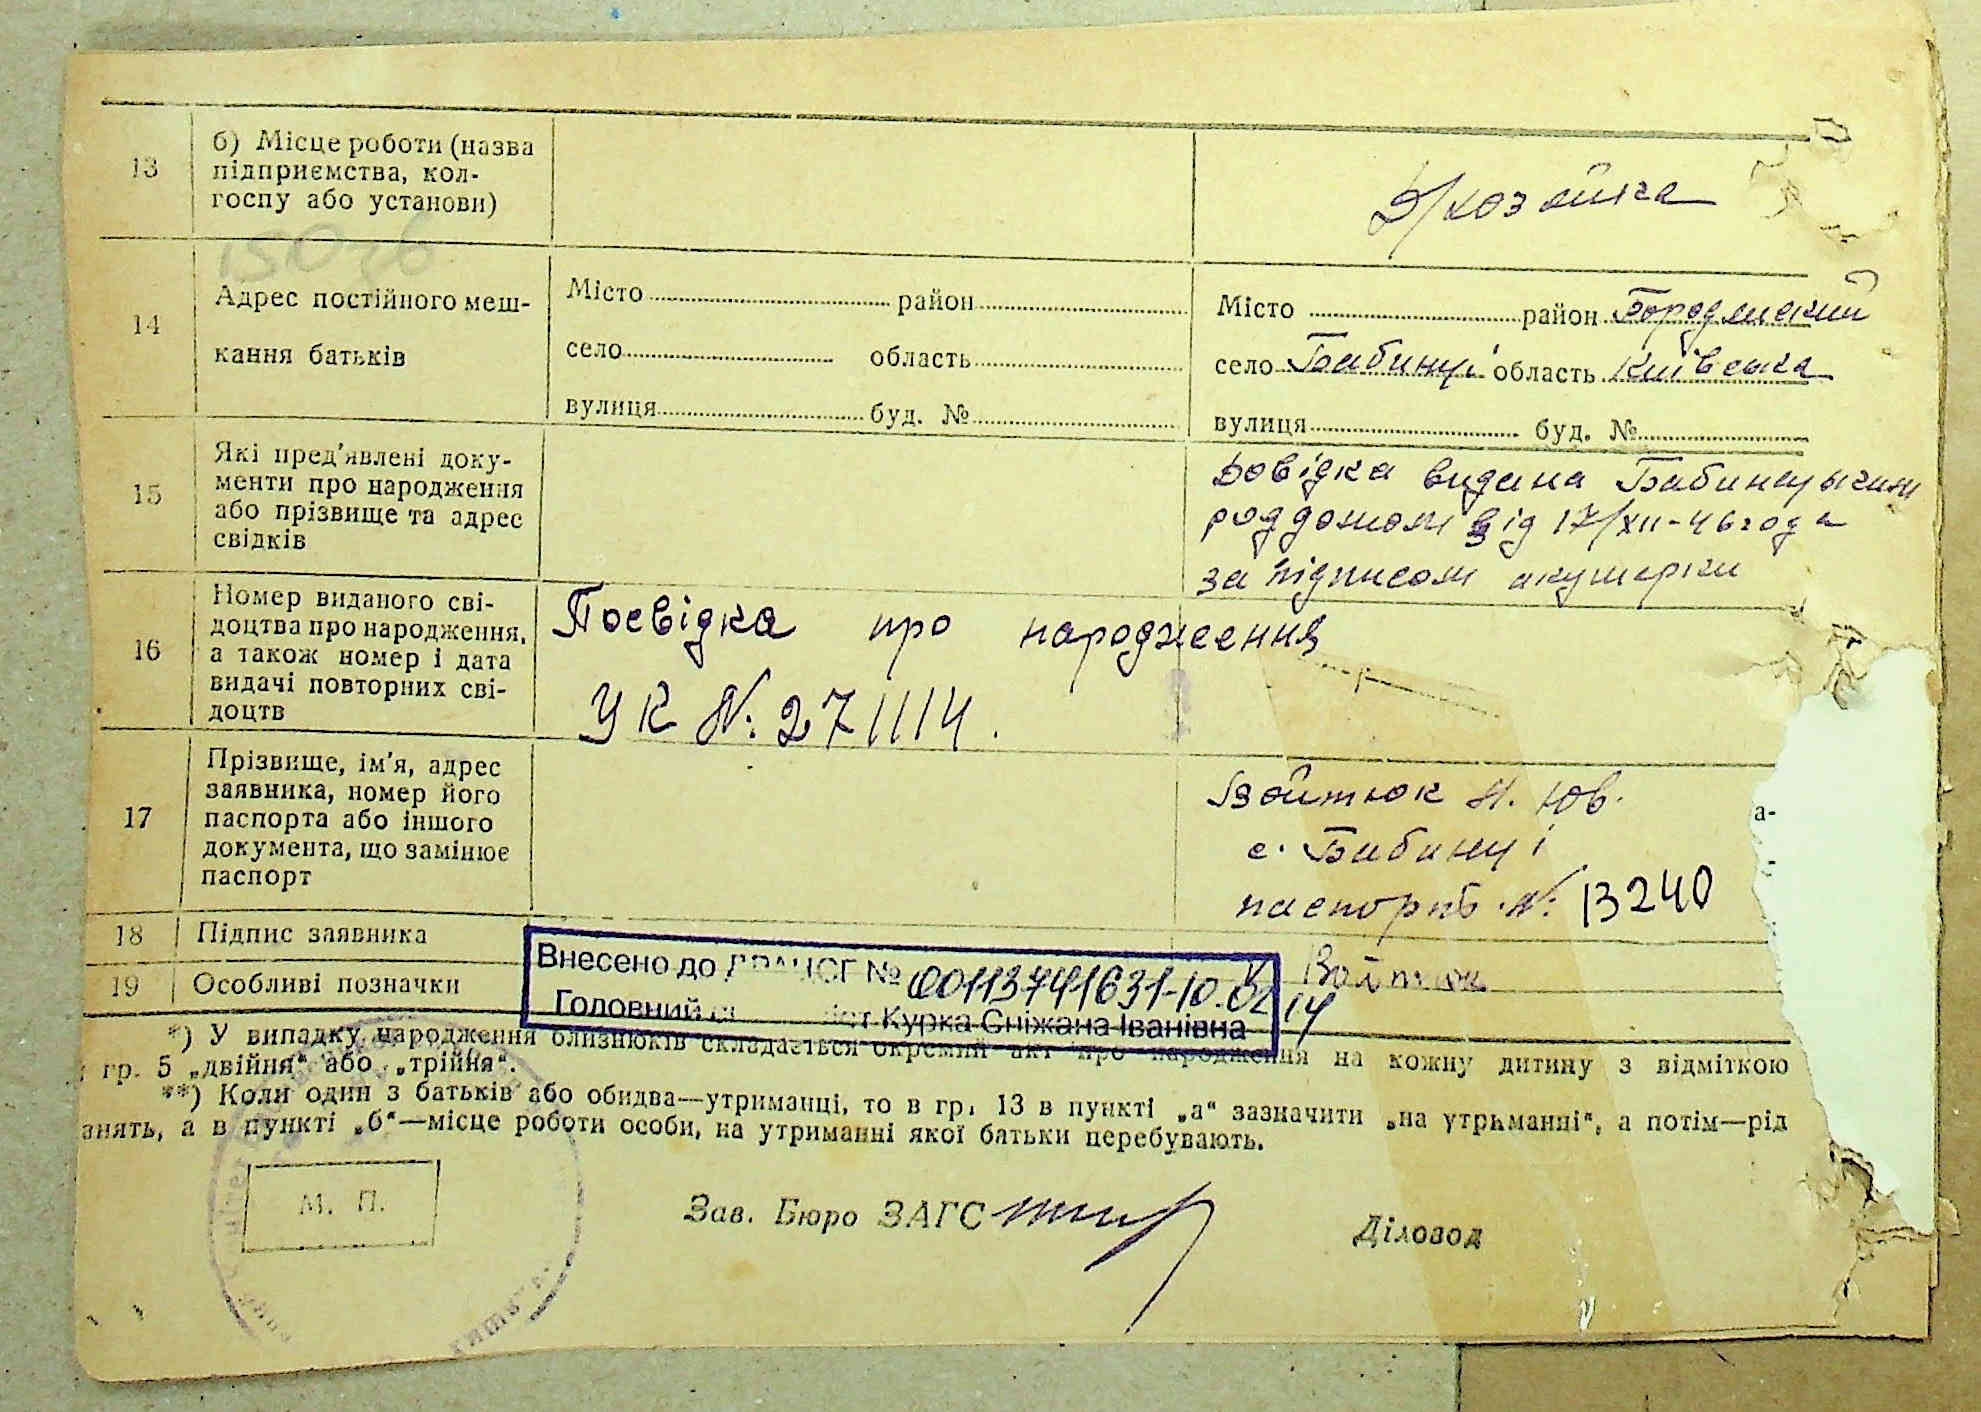 13
б) Місце роботи (назва
підприємства, кол-
госпу або установи)
Д/хозяйка
14
Адрес постійного меш-
кання батьків
Місто район
село область
вулиця буд. №
Місто район Бородянский
село Бабинці область Київська
вулиця буд. №
15
Які пред'явлені доку-
менти про народження
або прізвище та адрес
свідків
Довідка видана Бабинецьким
роддомом від 17/XII-46 года
за підписом акушерки
16
Номер виданого сві-
доцтва про народження,
а також номер і дата
видачі повторних сві-
доцтв
Посвідка про народження
УК №: 271114.
17
Прізвище, ім'я, адрес
заявника, номер його
паспорта або іншого
документа, що замінює
паспорт
Войтюк Н. Юв.
с. Бабинці
паспорт №: 13240
а-
18
Підпис заявника
Войтюк
19
Особливі позначки
Внесено до ДРАЦСГ № 00113741631-10.02.14
Головний Курка Сніжана Іванівна
*) У випадку народження близнюків складається окремий акт про народження на кожну дитину з відміткою
гр. 5 „двійня“ або „трійня“.
**) Коли один з батьків або обидва—утриманці, то в гр. 13 в пункті „а“ зазначити „на утриманні“, а потім—рід
анять, а в пункті „б“—місце роботи особи, на утриманні якої батьки перебувають.
М. П.
Зав. Бюро ЗАГС
Діловод